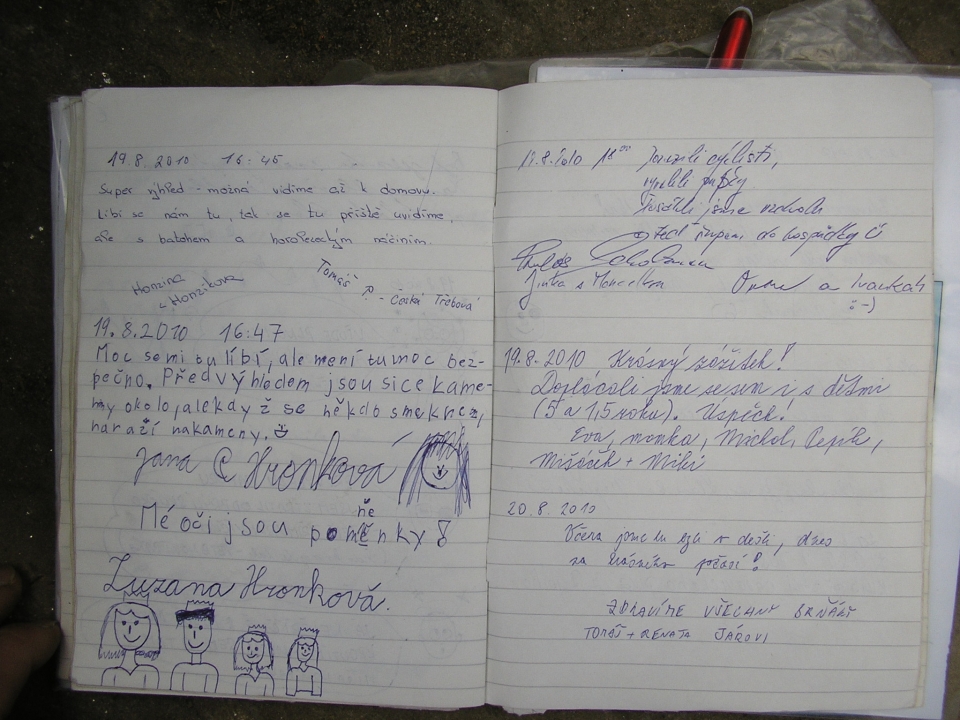 19.8.2010 16:45
Super výhled - možná vidíme až k domovu.
Líbí se nám tu, tak se tu příště uvidíme,
ale s batohem a horolezeckým náčiním.
Honzina
Honzíkova
Tomáš P. - Česká Třebová
19.8.2010 16:47
Moc se mi tu líbí, ale není tu moc bez-
pečno. Před výhledem jsou sice kame-
ny okolo, ale když se někdo smekne,
narazí na kameny.
Jana Hronková
Mé oči jsou poměnky!
ně
Zuzana Hronková.
19.8.2010 18⁰⁰ cyklisti,
jsme
do hospůdky
Jitka s
a
:-)
19.8.2010 Krásný zážitek!
Doplácali jsme se sem i s dětmi
(5 a 1,5 roku). Úspěch!
Eva, Monka, Michal, Pepík,
Mišáček + Miki
20.8.2010
Včera jsme tu byli v dešti, dnes
za krásného počasí!
ZDRAVÍME VŠECHNY BRŇÁKY
TOMÁŠ + RENATA JÁROVI